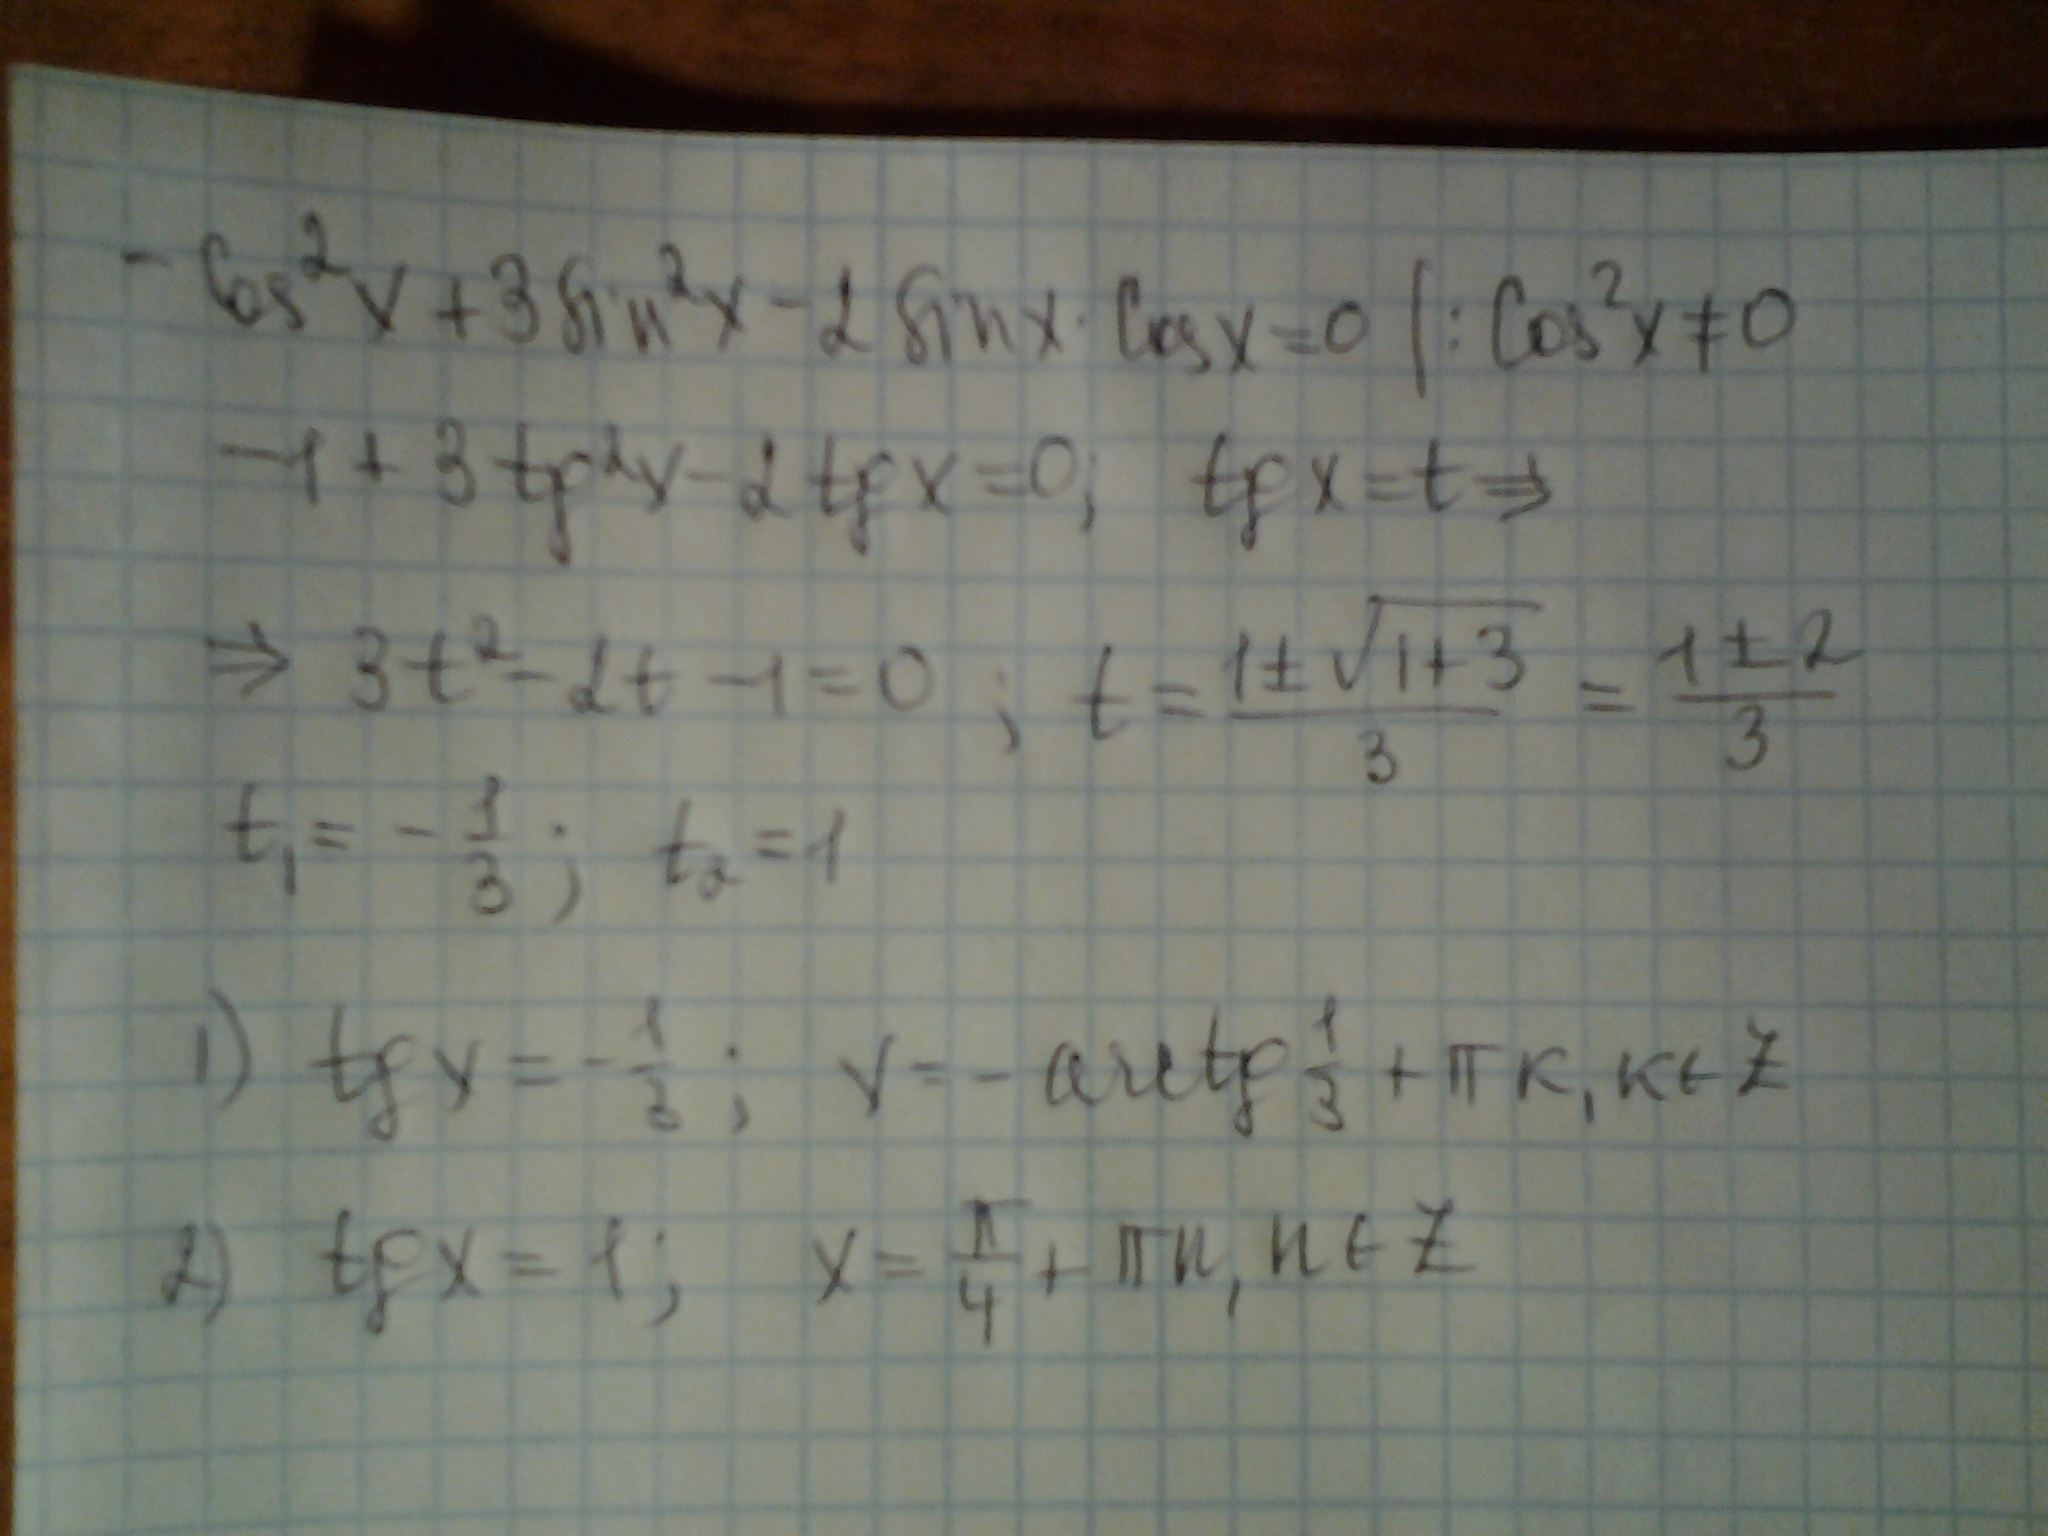 - Cos²x + 3 sin²x - 2 sin x · Cos x = 0 | : Cos²x ≠ 0
-1 + 3 tg²x - 2 tg x = 0; tg x = t ⇒
⇒ 3t² - 2t - 1 = 0 ; t = (1 ± √(1+3))/3 = (1 ± 2)/3
t₁ = - 1/3 ; t₂ = 1
1) tg x = - 1/3 ; x = - arctg 1/3 + πк, к ∈ Z
2) tg x = 1; x = π/4 + πn, n ∈ Z